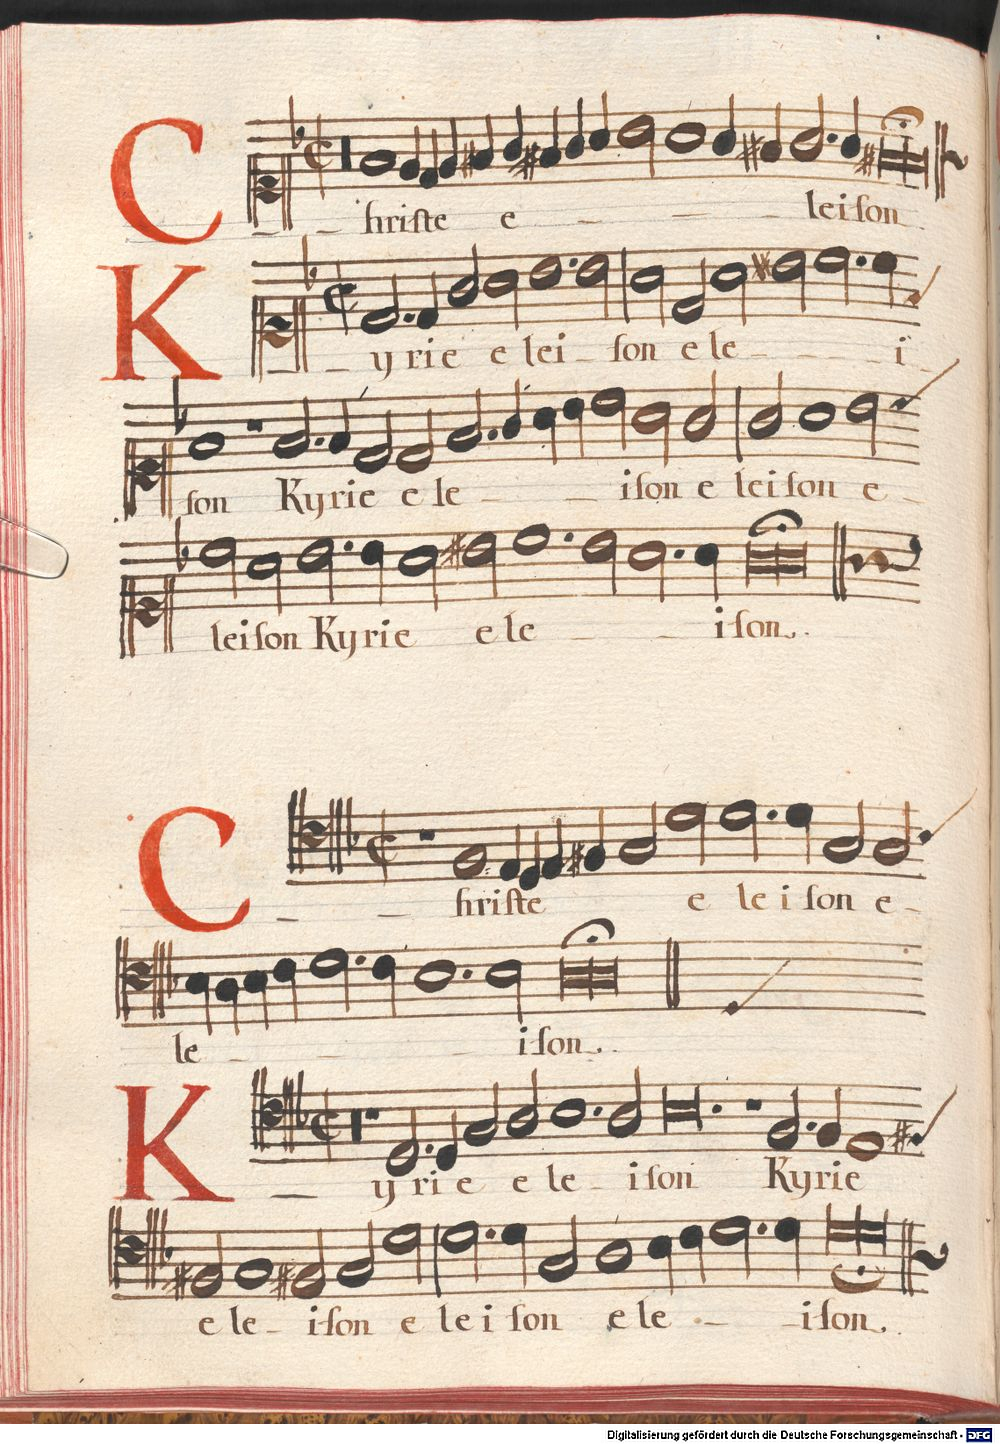 Christe e - - - leison
Kyrie elei - son ele - - - i -
son Kyrie ele - - ison eleison e -
leison Kyrie ele - - ison.
Christe eleison e -
le - - - - ison.
Kyrie ele - ison Kyrie
ele - ison eleison ele - - ison.
Digitalisierung gefördert durch die Deutsche Forschungsgemeinschaft - DFG